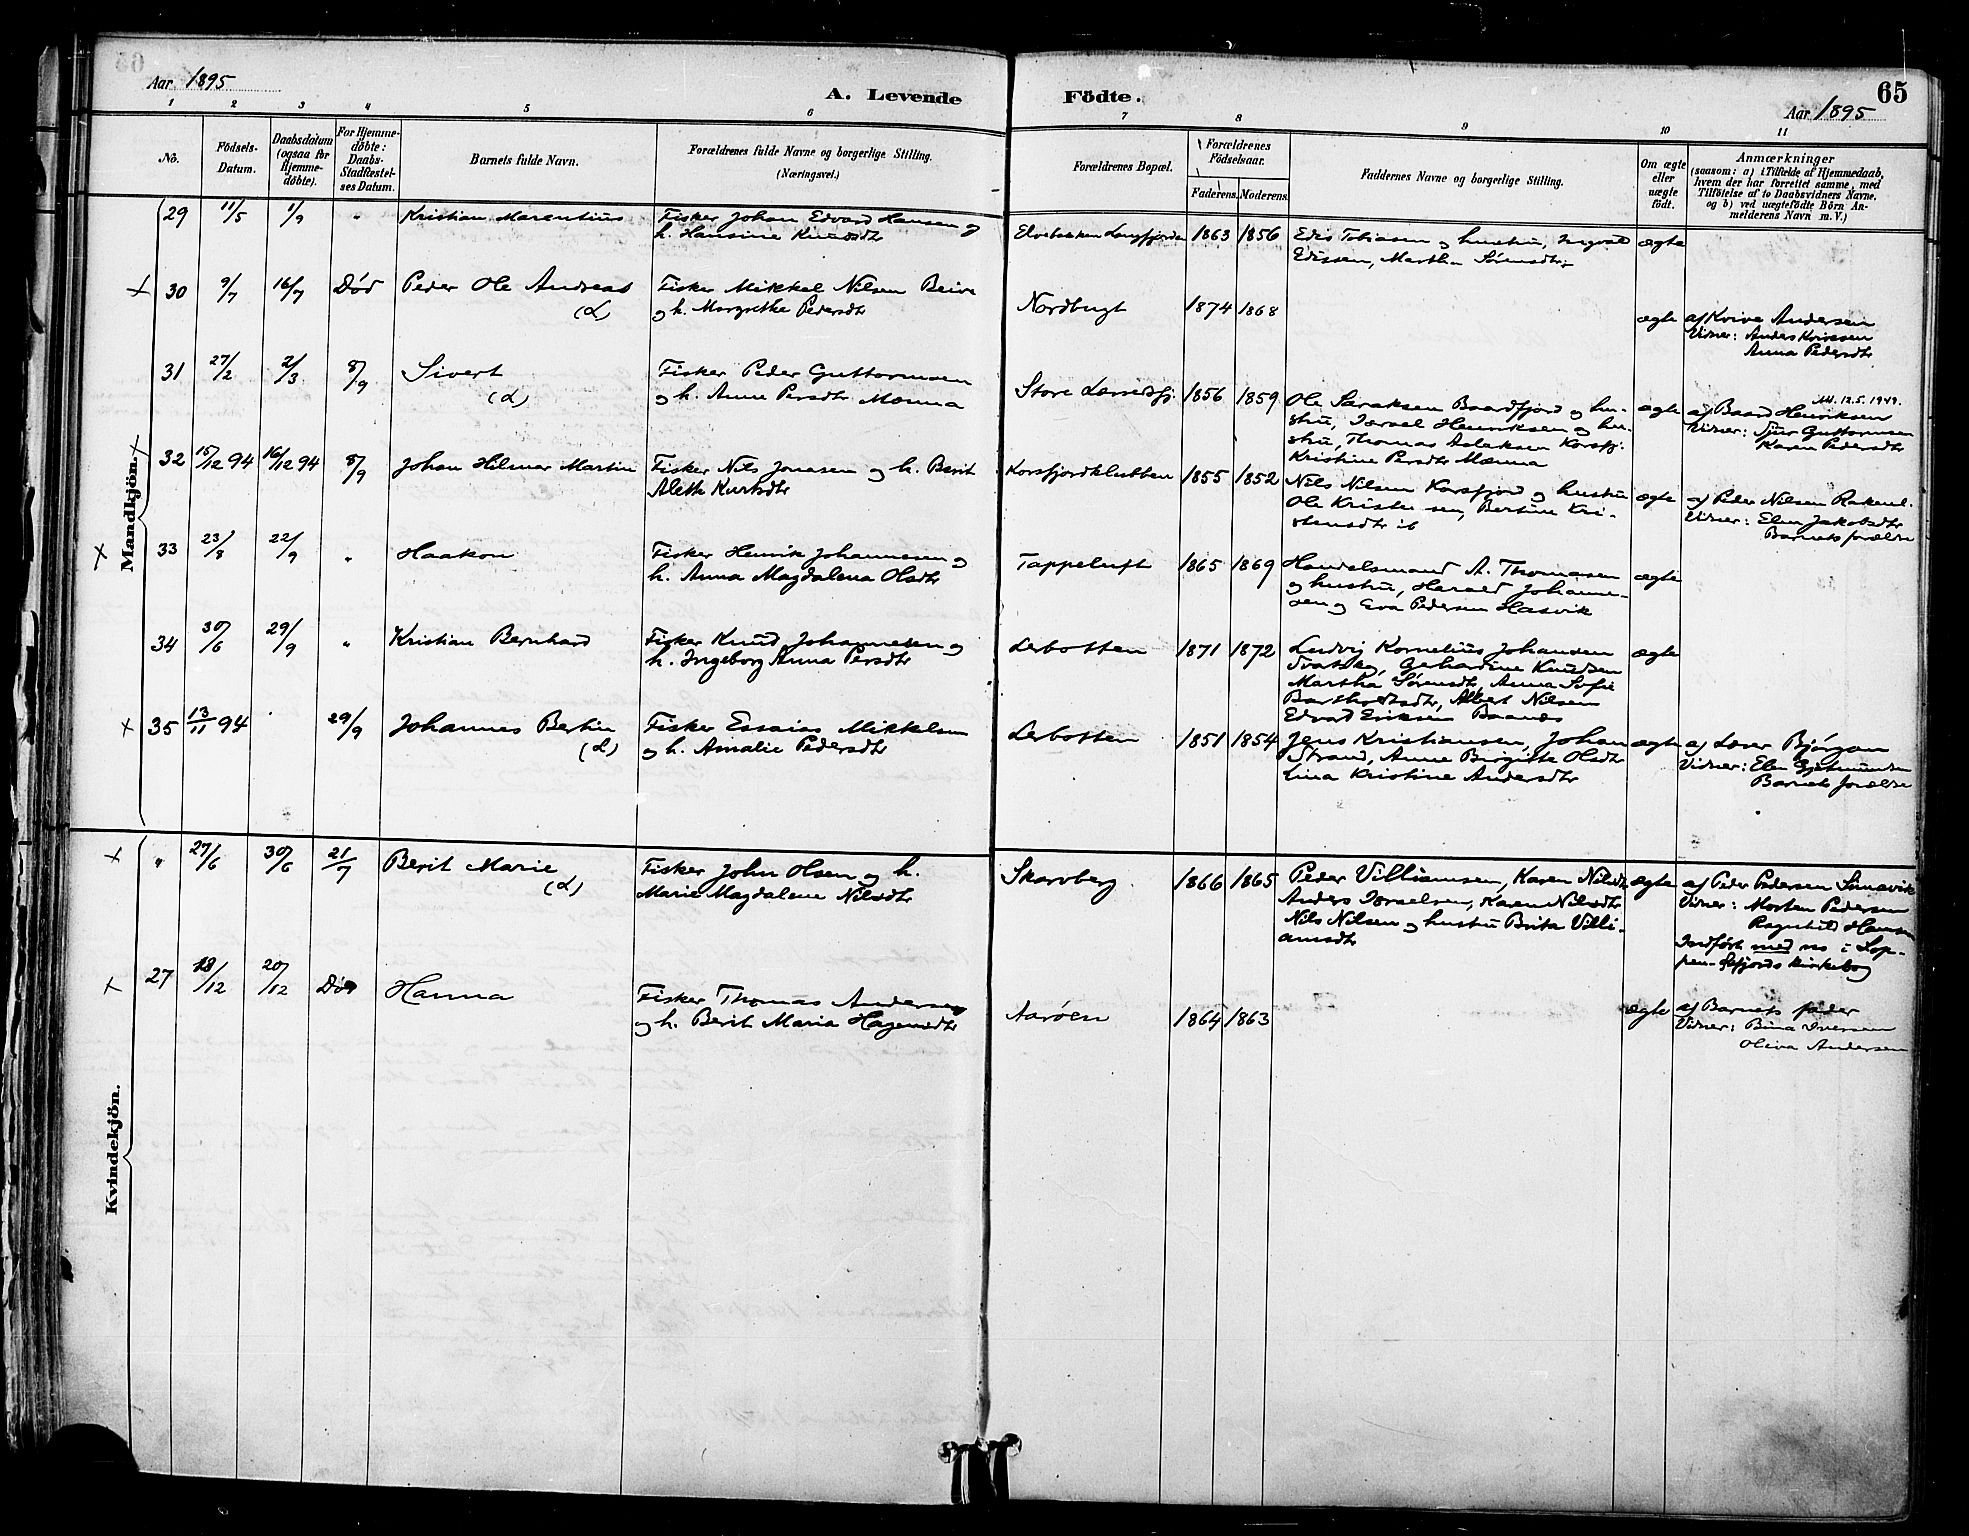 65
Aar 1895
A. Levende Födte.
Aar 1895
1 2 3 4 5 6 7 8 9 10 11
No.
Födsels-Datum.
Daabsdatum (ogsaa for Hjemmedøbte).
For Hjemmedøbte: Daabs-Stadfæstelses Datum.
Barnets fulde Navn.
Forældrenes fulde Navne og borgerlige Stilling.
(Næringsvei.)
Forældrenes Bopæl.
Forældrenes Födselsaar.
Faderens. Moderens.
Faddernes Navne og borgerlige Stilling.
Om ægte eller uægte födt.
Anmærkninger
(saasom: a) i Tilfælde af Hjemmedaab,
hvem der har forrettet samme, med
Tilføielse af to Daabsvidners Navne,
og b) ved uægtefödte Börn An-
melderens Navn m. V.)
Mandkjön.
29 11/5 1/9 " Kristian Marentius
Fisker Johan Edvard Hansen og
h. Hansine Knudsdtr
Elvebakken Langfjorden 1863 1856
Edis Tobiasen og hustru, Ingvald
Edissen, Martha Sørensdtr
ægte
30 9/7 16/7 Død Peder Ole Andreas
(L)
Fisker Mikkel Nilsen Beive
og h. Margrethe Pedersdtr
Nordbugt 1874 1868
ægte
af Kvive Andersen
Vidner: Anders Kvivesen
Anna Pedersdtr
31 27/2 2/3 8/9 Sivert
(L)
Fisker Peder Guttormsen
og h. Anne Persdtr Mænna
Store Lerredsfj. 1856 1859
Ole Saraksen Baardfjord og hu-
stru, Israel Henriksen og hu-
stru, Thomas Aslaksen Korsfj.
Kristine Persdtr Mænna
ægte
12.5.1949.
af Baard Henriksen
Vidner: Sjur Guttormsen
Karen Pedersdtr
32 15/12 94 16/12 94 8/9 Johan Hilmar Martin
Fisker Nils Jonasen og h. Berit
Aleth Kurtsdtr
Korsfjordklubben 1855 1852
Nils Nilsen Korsfjord og hustru
Ole Kristensen, Bertine Kri-
stensdtr ib
ægte
af Peder Nilsen
Vidner: Elen Jakobsdtr
Barnets forældre
33 23/8 22/9 " Haakon
Fisker Henrik Johannesen og
h. Anna Magdalena Olsdtr
Tappeluft 1865 1869
Handelsmand A. Thomasen
og hustru, Harald Johanne-
sen og Eva Pedersen Hasvik
ægte
34 30/6 29/9 " Kristian Bernhard
Fisker Knud Johannesen og
h. Ingeborg Anna Persdtr
Lerbotten 1871 1872
Ludvig Kornelius Johansen
Gerhardine Knudsen
Martha Sørensdtr, Anna Sofie
Albert Nilsen
Edvard Eriksen
ægte
35 13/11 94 29/9 Johannes Bertin
(L)
Fisker Essaias Mikkelsen
og h. Amalie Pedersdtr
Lerbotten 1851 1854
Jens Kristiansen, Johan
Strand, Anne Birgitte Olsdtr
Lina Kristine Andersdtr
ægte
af Lærer Bjørgan
Vidner: Elen
Barnets forældre
Kvindekjön.
" 27/6 30/6 21/7 Berit Marie
(L)
Fisker John Olsen og h.
Marie Magdalene Nilsdtr
Skarvberg 1866 1865
Peder Villiamsen, Karen Nilsdtr
Anders Israelsen, Karen Nilsdtr
Nils Nilsen og hustru Brita Villi-
amsdtr
ægte
af Peder Pedersen
Vidner: Morten Pedersen
Ragnhild Hansen
Indført med no i Lop-
pen-Øxfjords kirkebog
27 18/12 20/12 Død Hanna
Fisker Thomas Andersen
og h. Berit Maria Hagensdtr
Aarøen 1864 1863
ægte
af Barnets fader
Vidner: Bina Iversen
Oliva Andersen